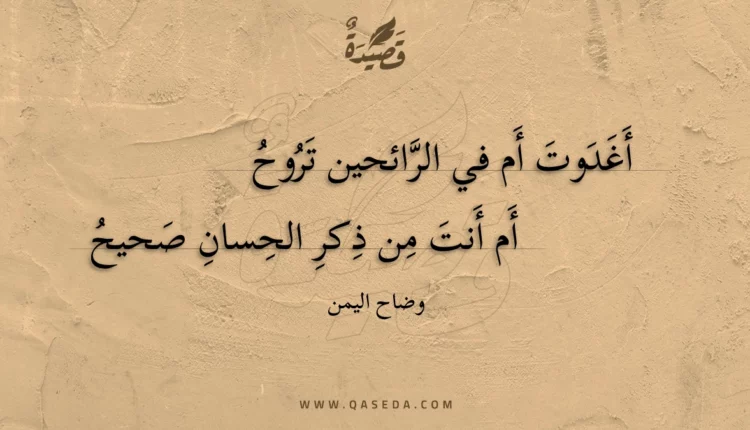 قَصِيدَةٌ
أَغَدَوتَ أَم في الرَّائحين تَرُوحُ
أَم أَنتَ مِن ذِكرِ الحِسانِ صَحيحُ
وضاح اليمن
WWW.QASEDA.COM